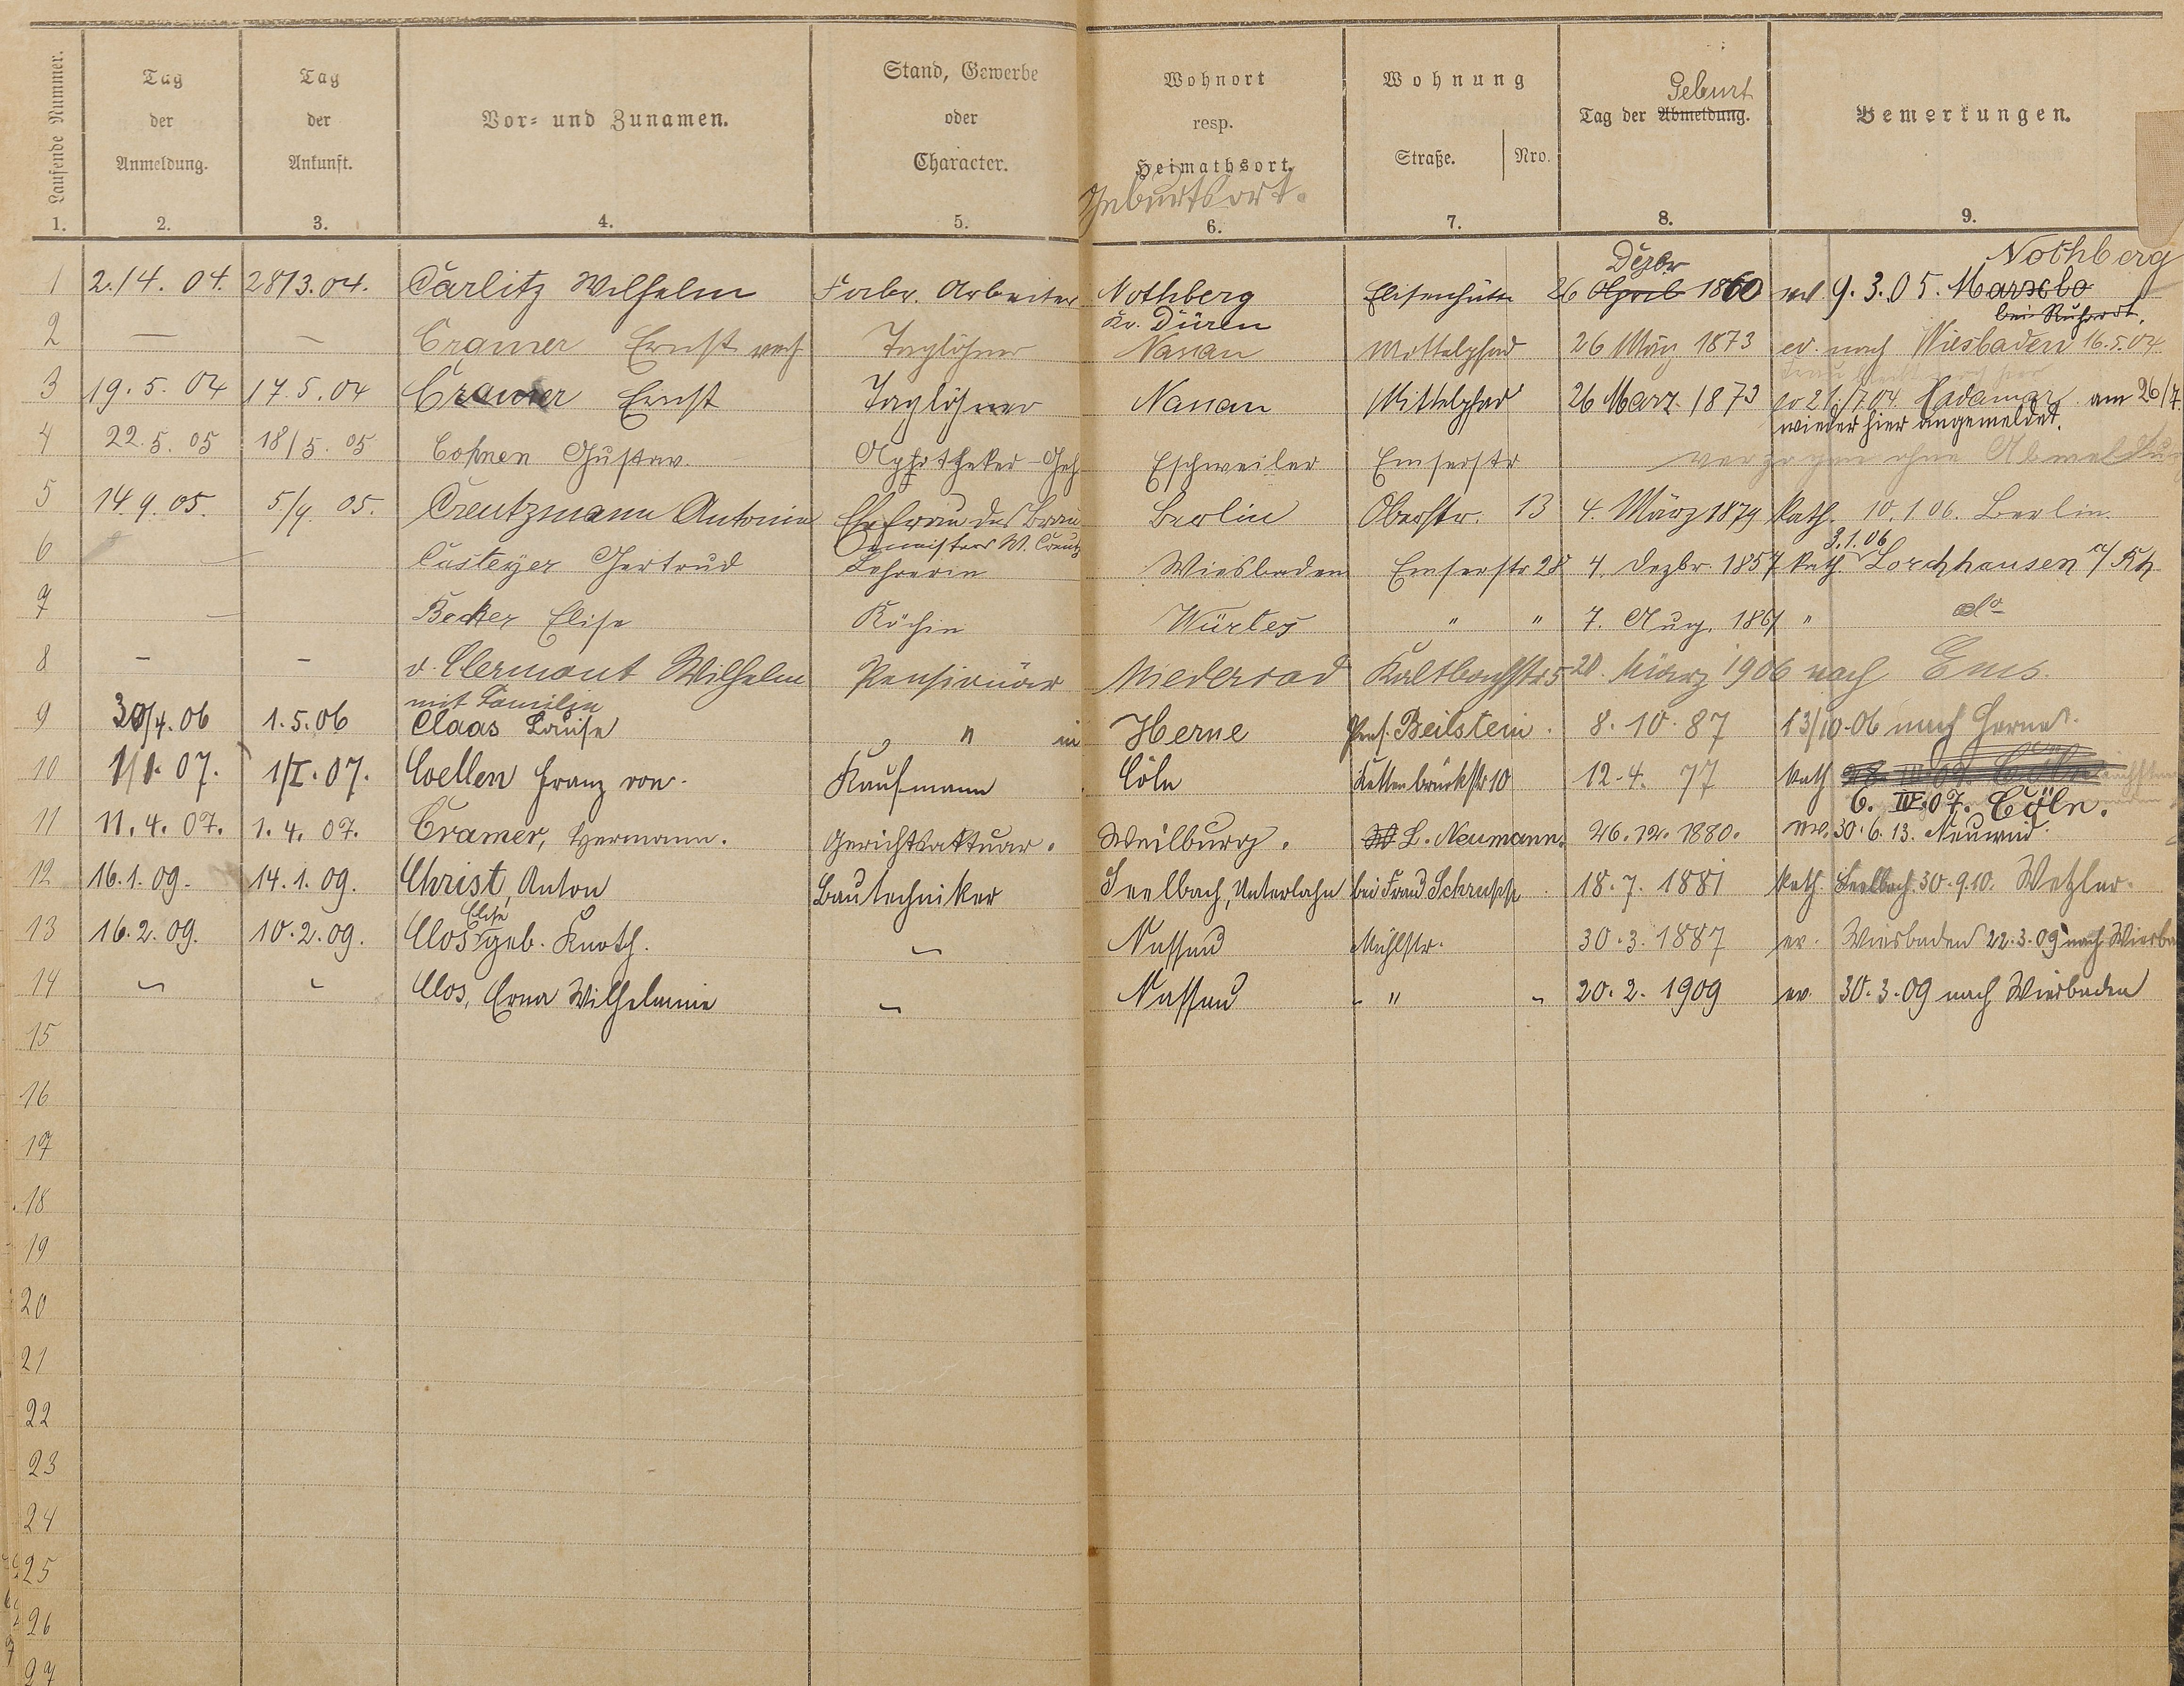 Laufende Nummer. Tag der Anmeldung. Tag der Ankunft. Vor- und Zunamen. Stand, Gewerbe oder Character. Wohnort resp. Heimathsort. Geburtsort. Wohnung Straße. Nro. Tag der Abmeldung. Geburt Bemerkungen.
1. 2. 3. 4. 5. 6. 7. 8. 9.
1 2./4. 04. 28/3. 04. Carlitz Wilhelm Fabr. Arbeiter Nothberg Kr. Düren Elisenhütte 26 April Dezbr 1860 9.3.05. Marxloh bei Ruhrort. Nothberg
2 — — Cramer Ernst Taglöhner Nassau Mittelpfad 26 März 1873 ev. nach Wiesbaden 16.5.04
3 19. 5. 04 17. 5. 04 Cramer Ernst Taglöhner Nassau Mittelpfad 26 März 1873 21./7 04. Hadamar am 26/7.
wieder hier angemeldet.
4 22. 5. 05 18/5. 05 Cohnen Gustav. Apotheker-Geh. Eschweiler Emserstr verzogen ohne Abmeldung
5 14. 9. 05. 5./9. 05. Creutzmann Antonie Ehefrau des Brau- Berlin Oberstr. 13 4. März 1879 Kath. 10. 1 06. Berlin.
meisters W. Creutz
6 — — Casteyer Gertrud Lehrerin Wiesbaden Emserstr 28 4. Dezbr. 1857 Kath. 3.1.06 Lorchhausen a/Rh
7 — — Becker Elise Köchin Würges " " 7. Aug. 1867 " do
8 — — v. Clermont Wilhelm Pensionär Niederrad Kaltbachstr 5 20. März 1906 nach Ems.
mit Familie
9 30/4. 06 1. 5. 06 Claas Louise " in Herne Pens. Beilstein. 8. 10. 87 13/10. 06 nach Herne.
10 1/1. 07. 1/I. 07. Coellen Franz von. Kaufmann Cöln Kettenbrückstr 10 12. 4. 77 Kath
6. IV. 07. Cöln.
11 11. 4. 07. 1. 4. 07. Cramer, Hermann. Gerichtsaktuar. Weilburg. L. Neumann. 26. 12. 1880. ev. 30. 6. 13. Neuwied.
12 16. 1. 09. 14. 1. 09. Christ, Anton Bautechniker Seelbach, Unterlahn bei Frau Schrupp. 18. 7. 1881 Kath. Seelbach. 30. 9. 10. Wetzlar.
13 16. 2. 09. 10. 2. 09. Clos Elise geb. Knoth. " Nassau Mühlstr. 30. 3. 1887 ev. Wiesbaden 22. 3. 09 nach Wiesba
14 " " Clos, Erna Wilhelmine " Nassau " " " 20. 2. 1909 ev. 30. 3. 09 nach Wiesbaden
15
16
17
18
19
20
21
22
23
24
25
26
27